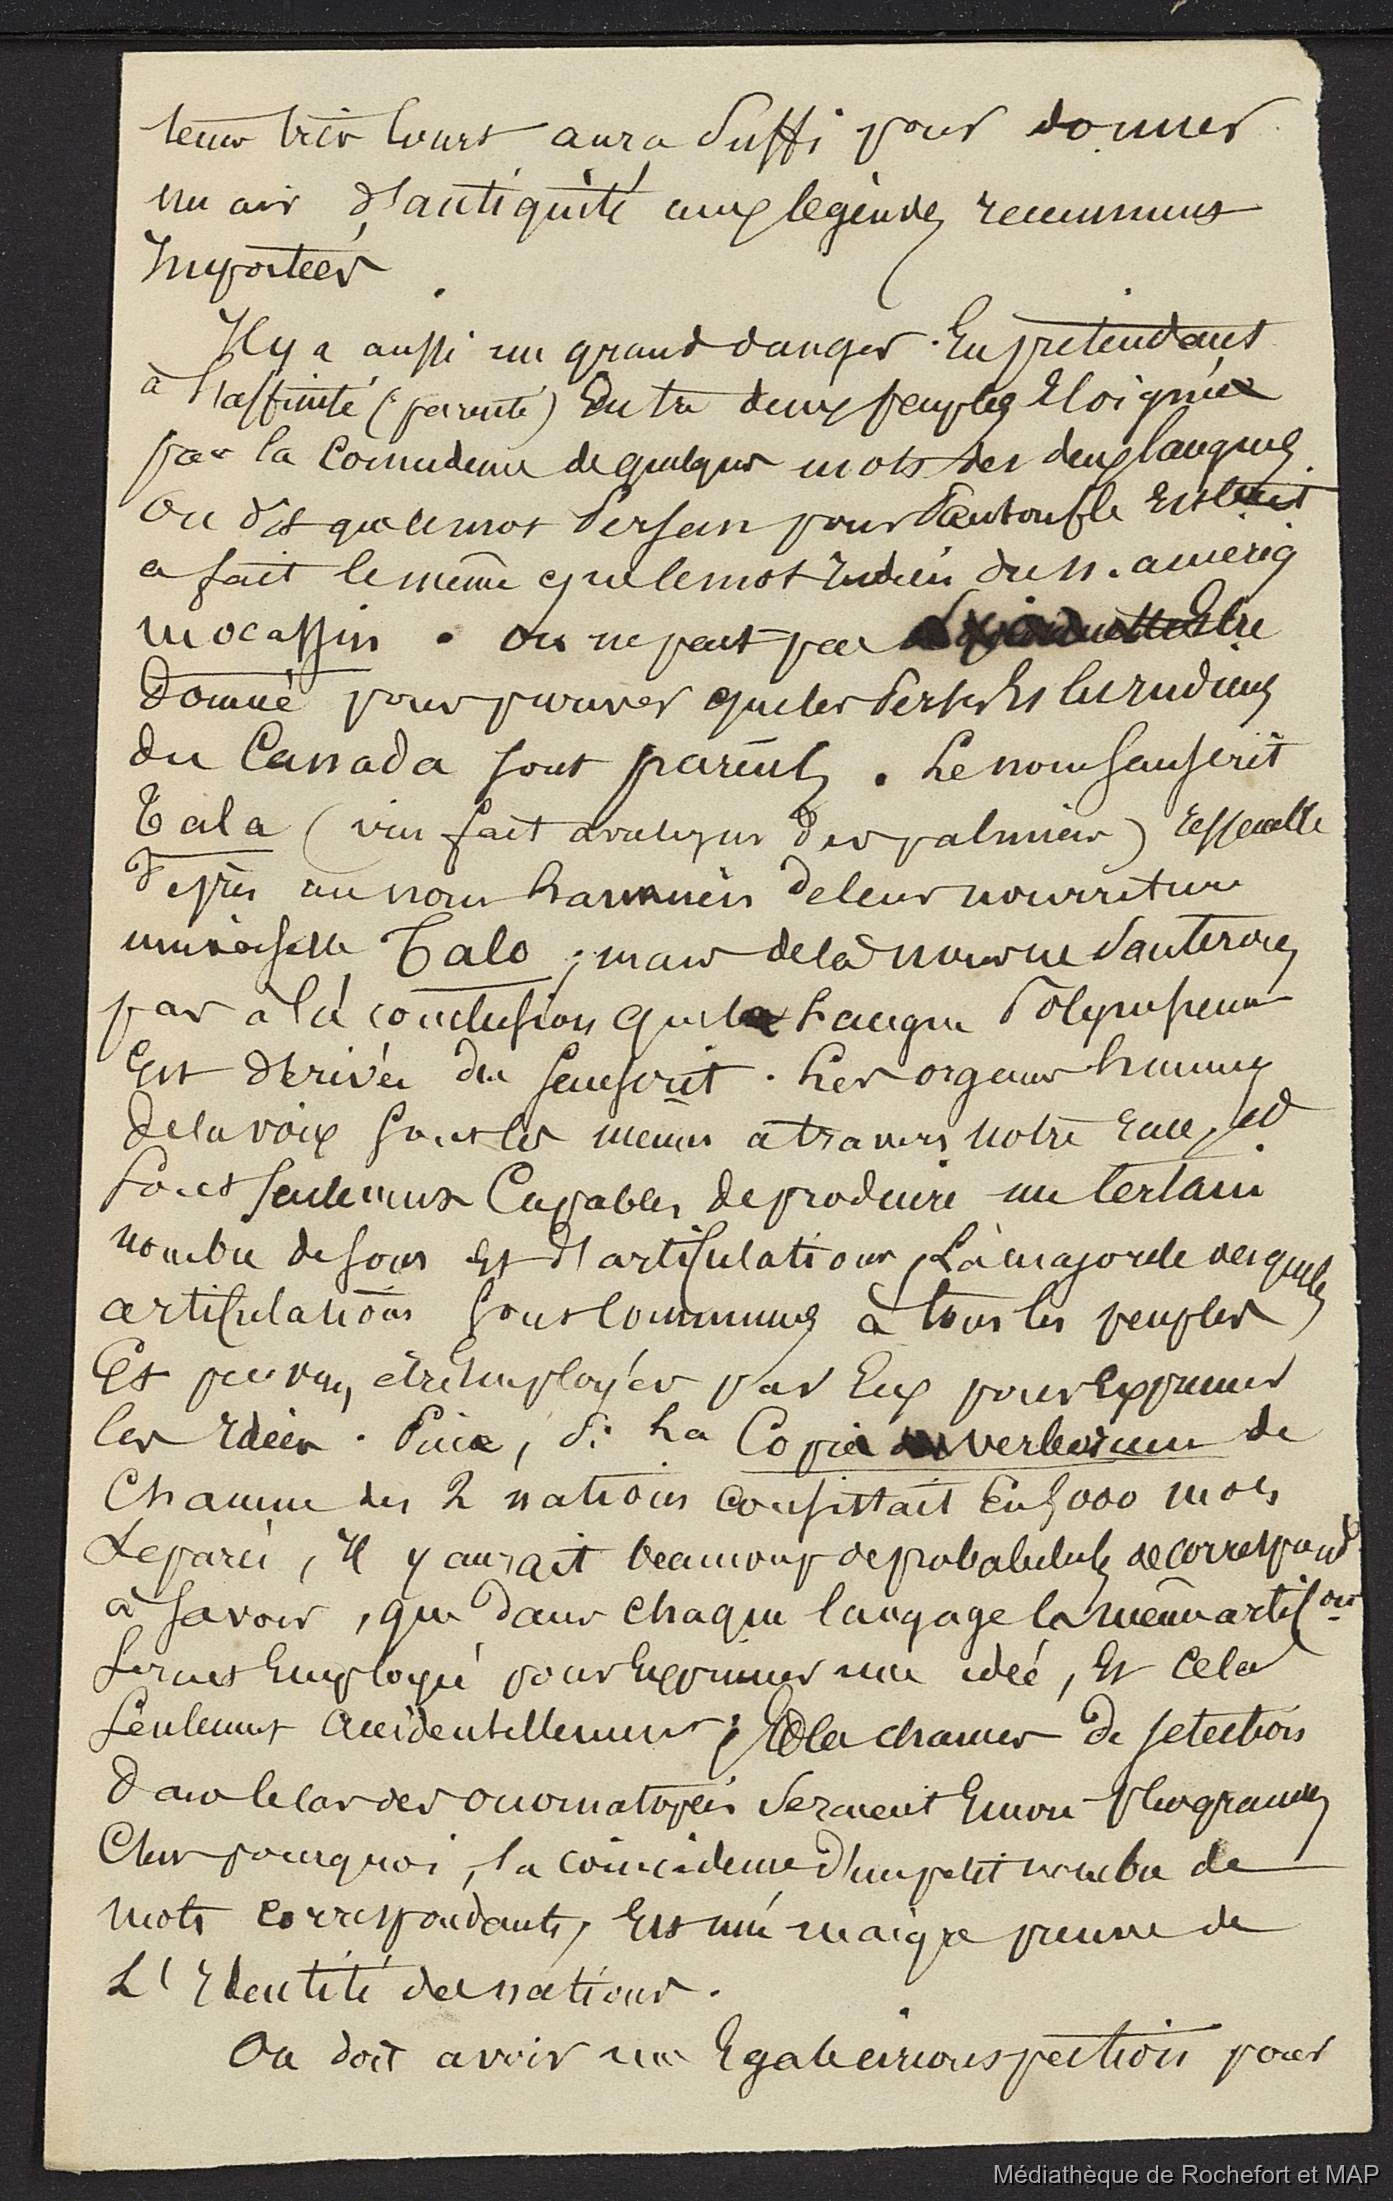 tems très court aura suffi pour donner
un air d'antiquité aux légendes récemment
Importées
Il y a aussi un grand danger. En prétendant
à l'affinité (parenté) Entre deux peuples Eloignés
par la coincidence de quelques mots des deux langues
On dit que le mot Persan pour Pantoufle Est
a fait le même que le mot Indien du n. amériq
mocassin. On ne peut pas Etre
Donné pour prouver que les Perses Et les Indiens
du Canada sont parents. Le nom Sanscrit
Tala (vin fait avec des palmiers) ressemble
de près au nom hawaien de leur nourriture
universelle Talo ; mais de là nous ne sauterons
pas à la conclusion que la Langue Polynésienne
Est dérivée du Sanscrit. Les organes humains
de la voix sont les mêmes à travers notre race, et
sont seulement Capables de produire un certain
nombre de sons Et d'articulations, La majorité desquelles
articulations sont communes à tous les peuples
Et peuvent être Employés par Eux pour Exprimer
les Idées. Puis, si La Copia verborum de
Chacune des 2 nations consistait En 5000 mots
séparés, Il y aurait beaucoup de probabilités de correspond
à savoir, que dans chaque langage la même artic.on
serait Employé pour Exprimer une idée, Et cela
seulement accidentellement ; Et la chance de selection
Dans le cas des onomatopées seraient Encore plus grandes
C'est pourquoi, la coincidence d'un petit nombre de
mots correspondants, Est une maigre preuve de
L'Identité des nations.
On doit avoir une Egale circonspection pour
Médiathèque de Rochefort et MAP